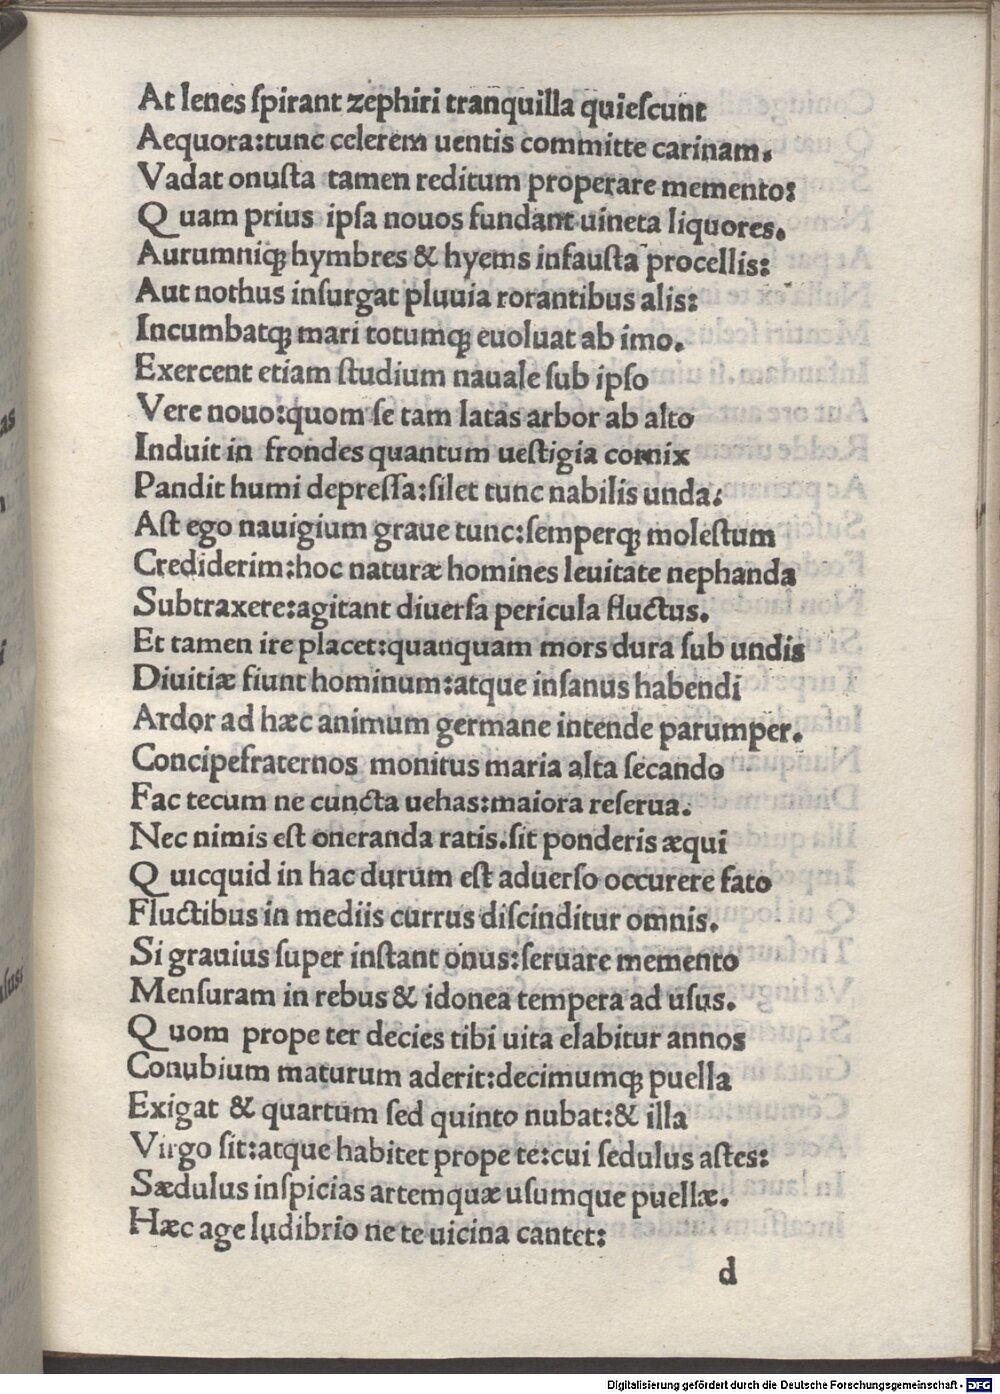 At lenes ſpirant zephiri tranquilla quieſcunt
Aequora:tunc celerem uentis committe carinam.
Vadat onuſta tamen reditum properare memento:
Quam prius ipſa nouos fundant uineta liquores.
Aurumniqꝫ hymbres & hyems infauſta procellis:
Aut nothus inſurgat pluuia rorantibus alis:
Incumbatqꝫ mari totumqꝫ euoluat ab imo.
Exercent etiam ſtudium nauale ſub ipſo
Vere nouo:quom ſe tam latas arbor ab alto
Induit in frondes quantum ueſtigia cornix
Pandit humi depreſſa:ſilet tunc nabilis unda:
Aſt ego nauigium graue tunc:ſemperqꝫ moleſtum
Crediderim:hoc naturæ homines leuitate nephanda
Subtraxere:agitant diuerſa pericula fluctus.
Et tamen ire placet:quanquam mors dura ſub undis
Diuitiæ fiunt hominum:atque inſanus habendi
Ardor ad hæc animum germane intende parumper.
Concipefraternos monitus maria alta ſecando
Fac tecum ne cuncta uehas:maiora reſerua.
Nec nimis eſt oneranda ratis.ſit ponderis æqui
Quicquid in hac durum eſt aduerſo occurere fato
Fluctibus in mediis currus diſcinditur omnis.
Si grauius ſuper inſtant onus:ſeruare memento
Menſuram in rebus & idonea tempera ad uſus.
Quom prope ter decies tibi uita elabitur annos
Conubium maturum aderit:decimumqꝫ puella
Exigat & quartum ſed quinto nubat:& illa
Virgo ſit:atque habitet prope te:cui ſedulus aſtes:
Sædulus inſpicias artemquæ uſumque puellæ.
Hæc age ludibrio ne te uicina cantet:
d
Digitalisierung gefördert durch die Deutsche Forschungsgemeinschaft - DFG